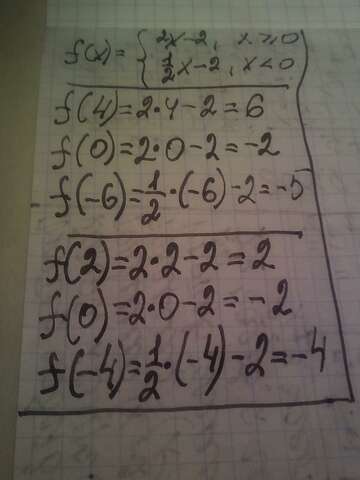 f(x) = { 2x-2, x ≥ 0
1/2 x-2, x < 0
f(4)=2·4-2=6
f(0)=2·0-2=-2
f(-6)=1/2·(-6)-2=-5
f(2)=2·2-2=2
f(0)=2·0-2=-2
f(-4)=1/2·(-4)-2=-4